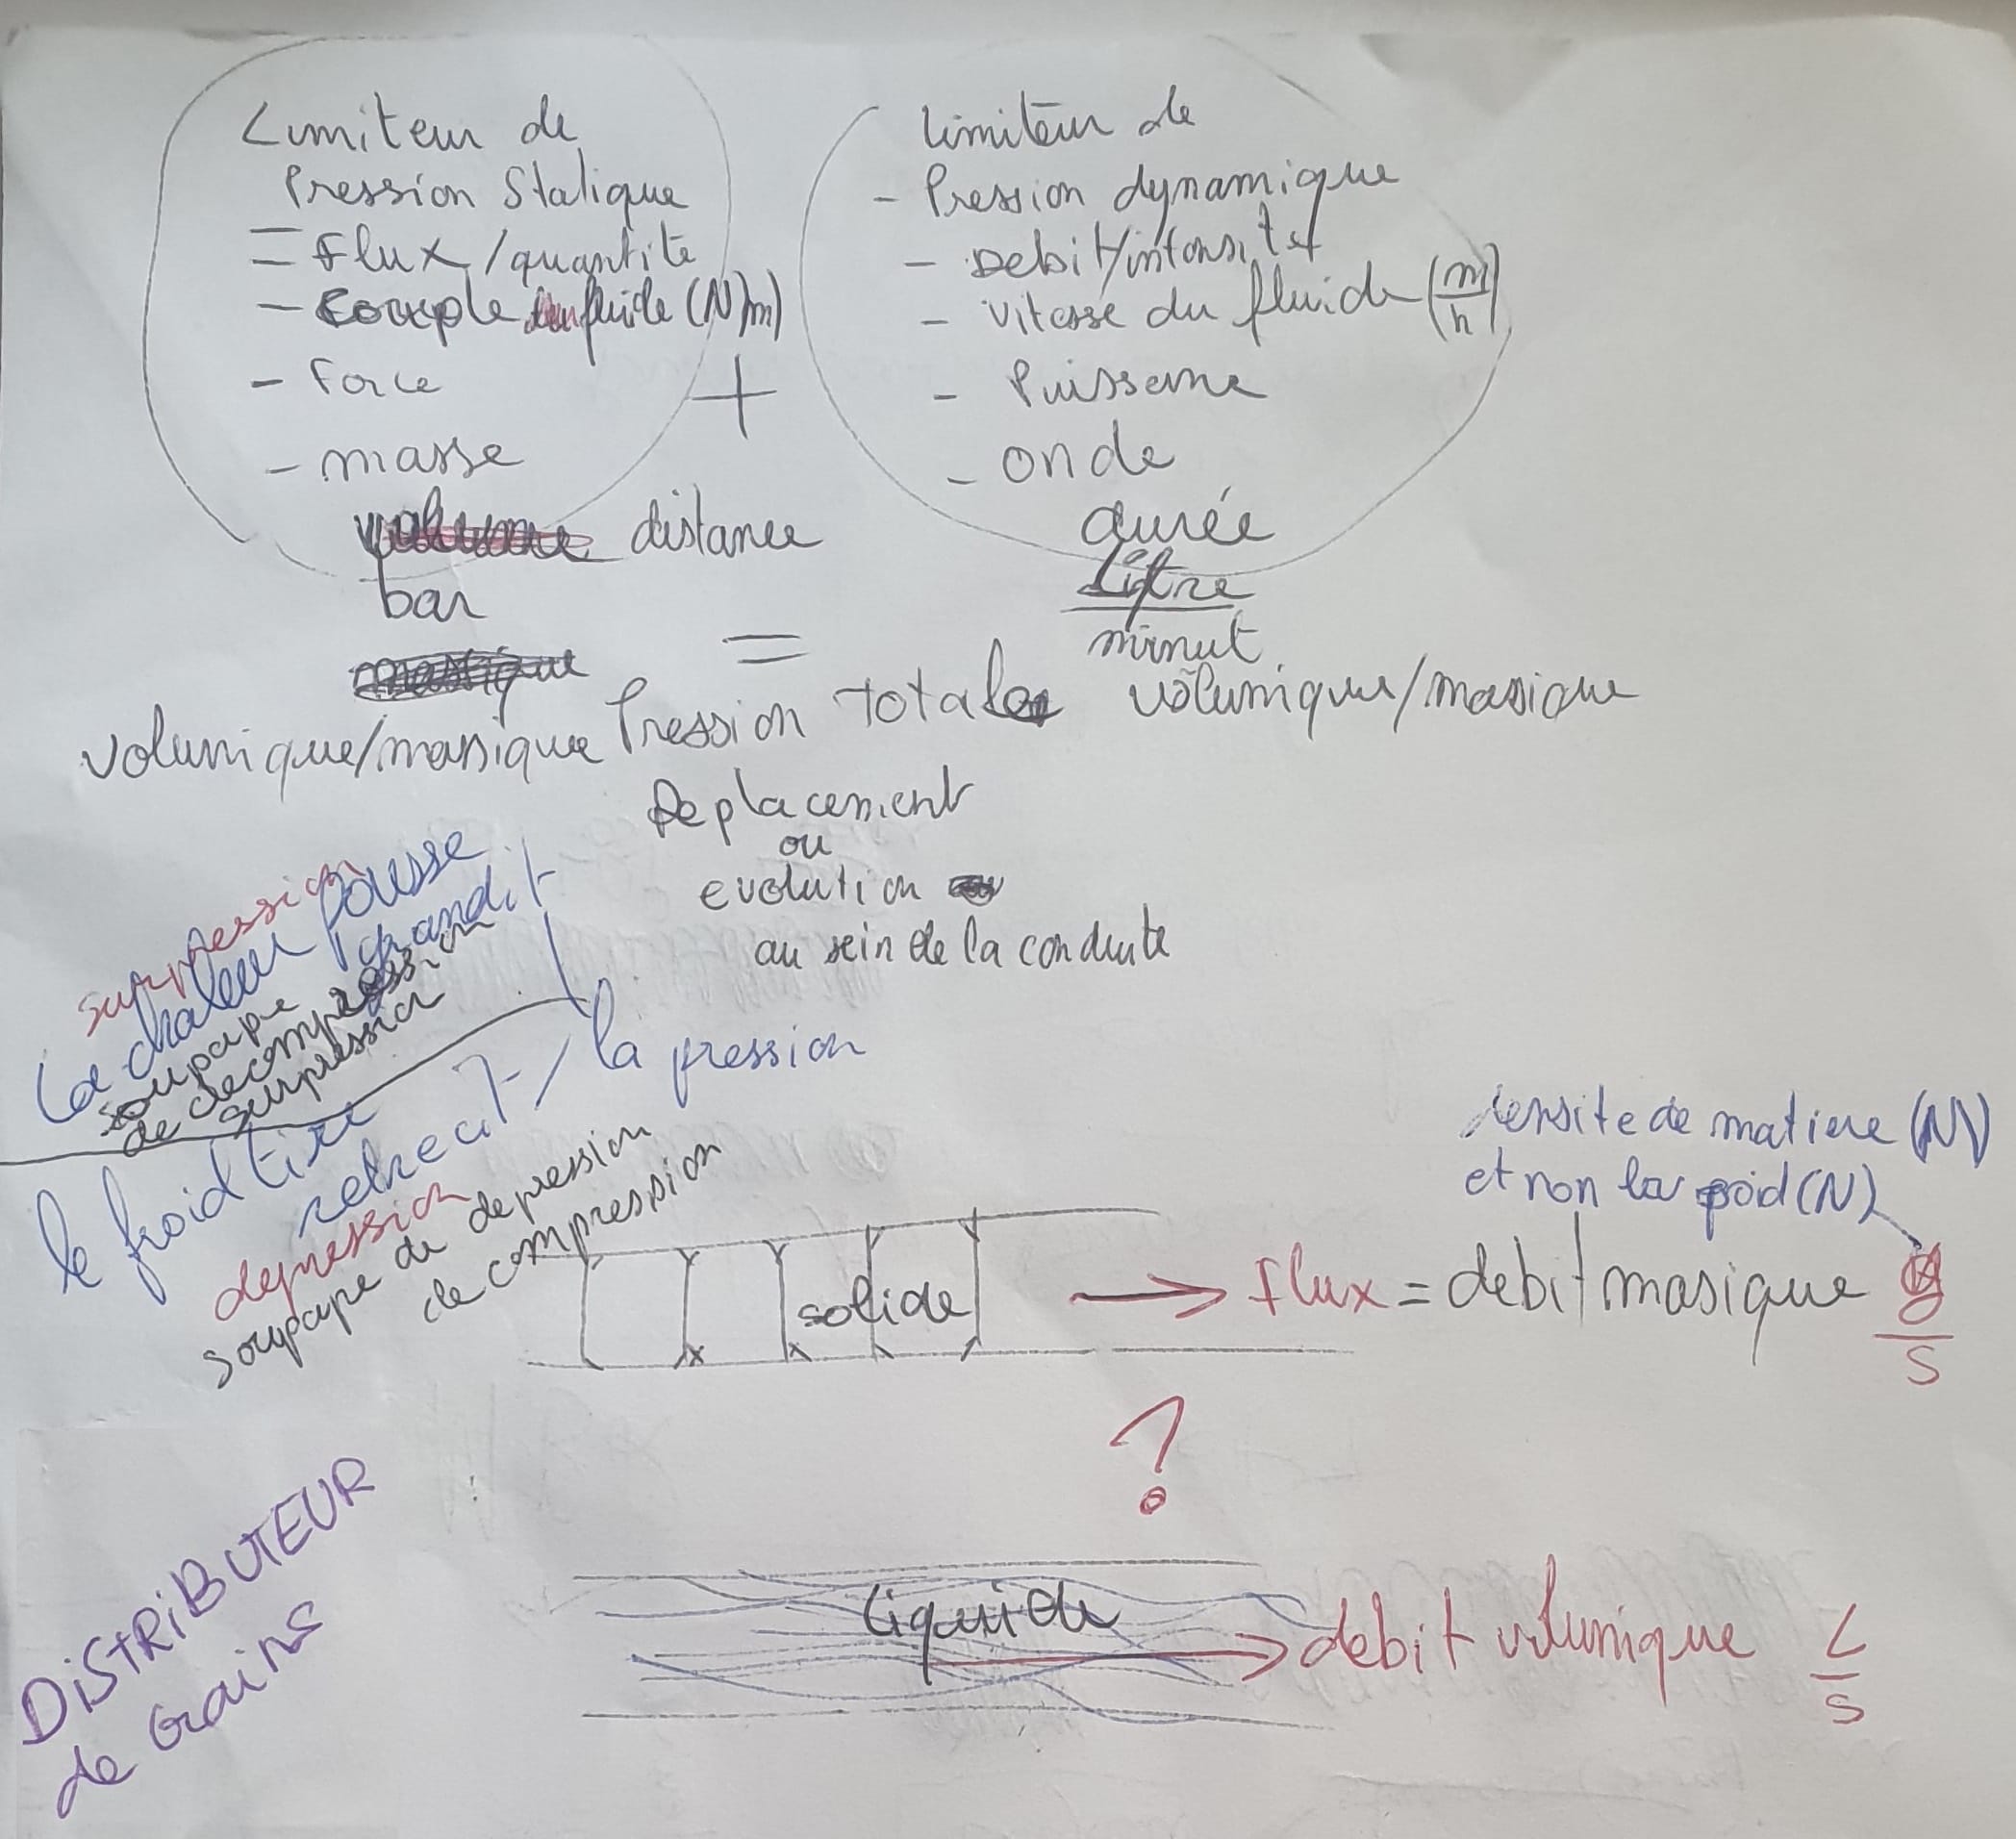 Limiteur de
Pression Statique
= Flux/quantité
- Couple du fluide (N)m)
- Force
- masse
volume distance
bar
massique
volumique/massique
+
limiteur de
- Pression dynamique
- Debit/intensité
- vitesse du fluide (m/h)
- Puissance
- onde
durée
Litre
minut
volumique/massique
=
Pression totale
Deplacement
ou
evolution
au sein de la conduite
surpression
la chaleur pousse
grandit
soupape
de decompression
surpression
la pression
le froid tire
retrecit
depression
soupape de depression
de compression
densite de matiere (N)
et non la poid (N)
solide
Flux = debit masique g
S
?
Liquide
debit volumique L
S
DiSTRiBUTEUR
de Grains